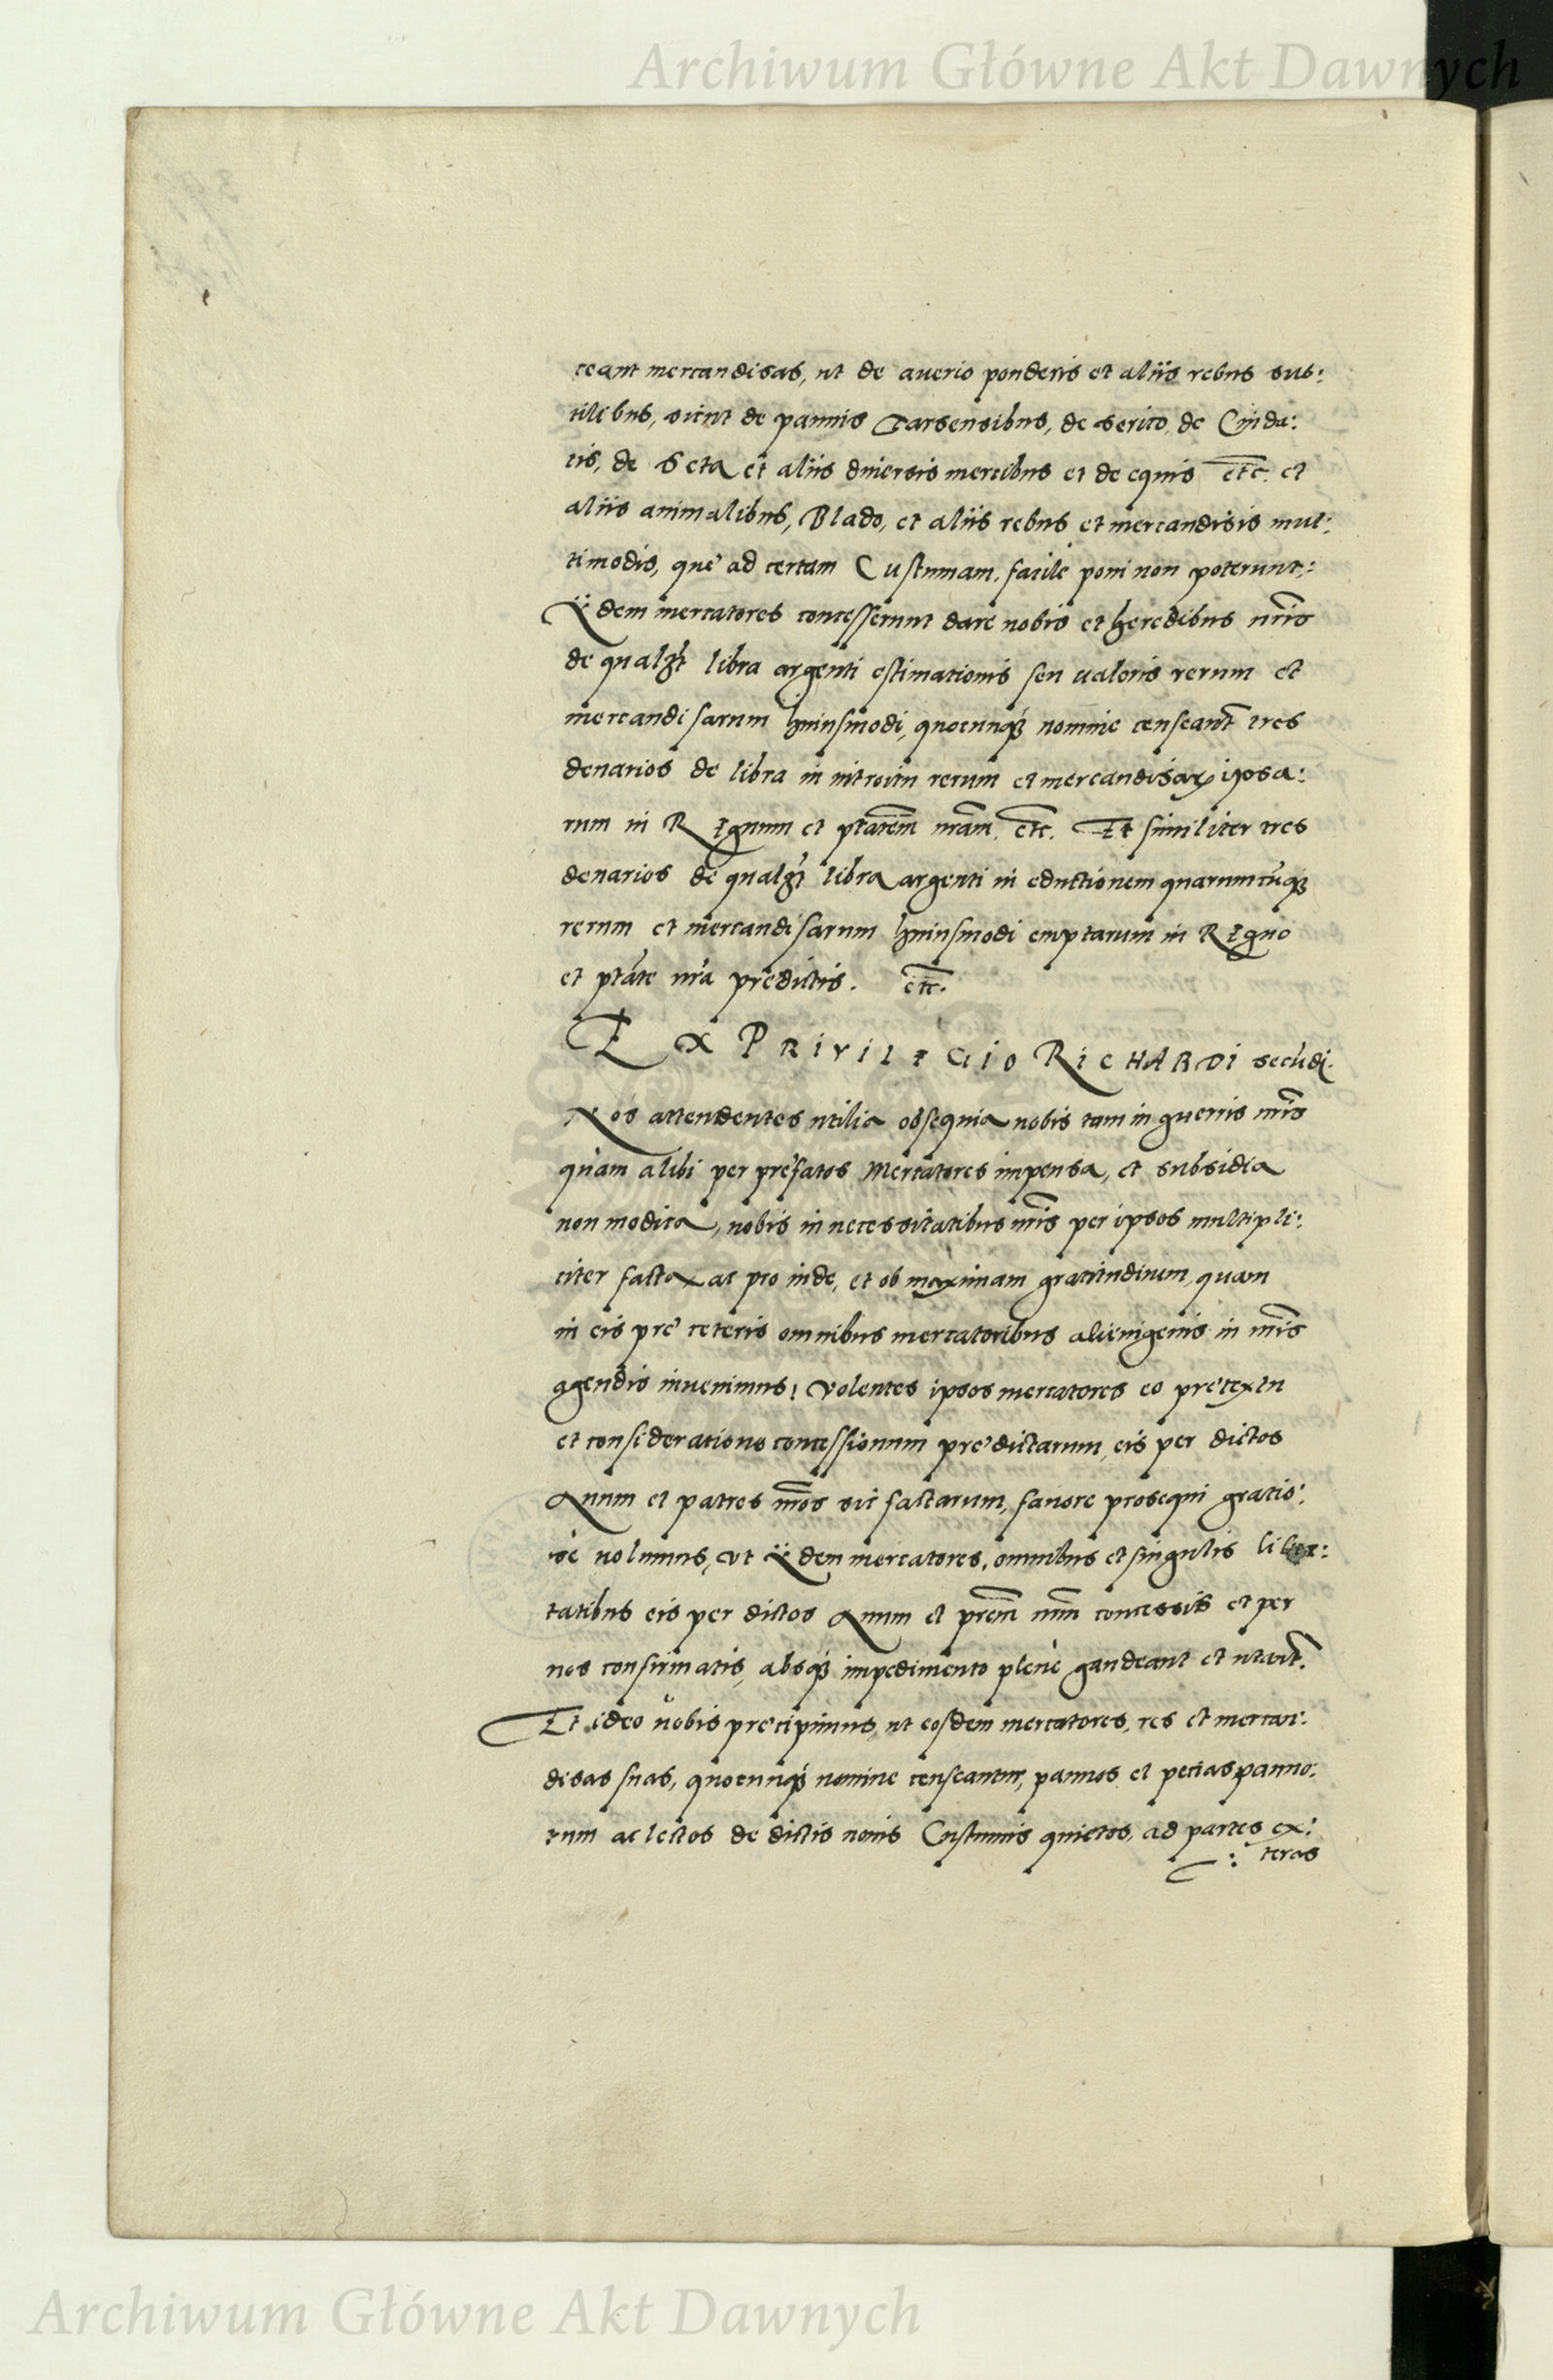 Archiwum Główne Akt Dawnych
ceant mercandisas, ut de auerio ponderis et aliis rebus sub:
tilibus, sicut de pannis Tarsensibus, de serico, de Cinda:
tis, de Seta et aliis diuersis mercibus et de equis etc. et
aliis animalibus, Blado, et aliis rebus et mercandisis mul:
timodis, que ad certam Custumam, facile poni non poterunt,:
Ydem mercatores concesserunt dare nobis et heredibus nris
de qualzt libra argenti estimationis seu ualoris rerum et
mercandisarum huiusmodi, quocunq nomine censeant tres
denarios de libra in introitu rerum et mercandisar ipsa:
rum in REgnum et ptatem nram, etc. Et similiter tres
denarios de qualzt libra argenti in eductionem quarumcuq
rerum et mercandisarum huiusmodi emptarum in REgno
et ptate nra predictis. etc.
EX PRIVILEGIO RICHARDI secudi.
Nos attendentes utilia obsequia nobis tam in guerris nris
quam alibi per prefatos Mercatores impensa, et subsidia
non modica, nobis in necessitatibus nris per ipsos multipli:
citer facta ac pro inde, et ob maximam gratitudinem, quam
in eis pre ceteris omnibus mercatoribus alienigenis in nris
agendis inuenimus! volentes ipsos mercatores eo pretextu
et consideratione concessionum predictarum, eis per dictos
Auum et patres nros sic factarum, fauore prosequi gratio:
se uolumus, vt Ydem mercatores, omnibus et singulis liber:
tatibus eis per dictos Auum et prem nrm concessis et per
nos confirmatis, absq impedimento plene gaudeant et utant.
Et ideo uobis precipimus, ut eosdem mercatores, res et mercan:
disas suas, quocunq nomine censeantur, pannos et pecias panno:
rum ac lectos de dictis nouis Custumis quietos, ad partes ex:
: teras
Archiwum Główne Akt Dawnych